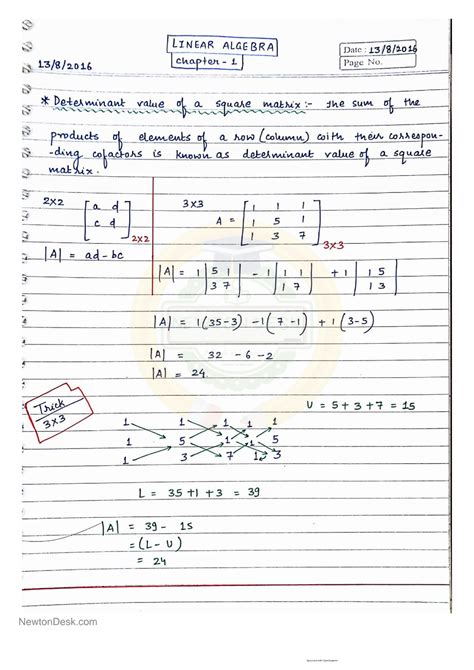 LINEAR ALGEBRA
Chapter - 1
Date : 13/8/2016
Page No.
13/8/2016
* Determinant value of a square matrix :- The sum of the
products of elements of a row (column) with their correspon-
-ding cofactors is known as determinant value of a square
matrix.
2x2
a d
c d
2x2
|A| = ad - bc
3x3
A =
1 1 1
1 5 1
1 3 7
3x3
|A| = 1 |5 1| - 1 |1 1| + 1 |1 5|
|3 7| |1 7| |1 3|
|A| = 1(35-3) - 1(7-1) + 1(3-5)
|A| = 32 - 6 - 2
|A| = 24
Trick
3x3
U = 5 + 3 + 7 = 15
1 1 1 1 1
1 5 1 1 5
1 3 7 1 3
L = 35 + 1 + 3 = 39
|A| = 39 - 15
= (L - U)
= 24
NewtonDesk.com